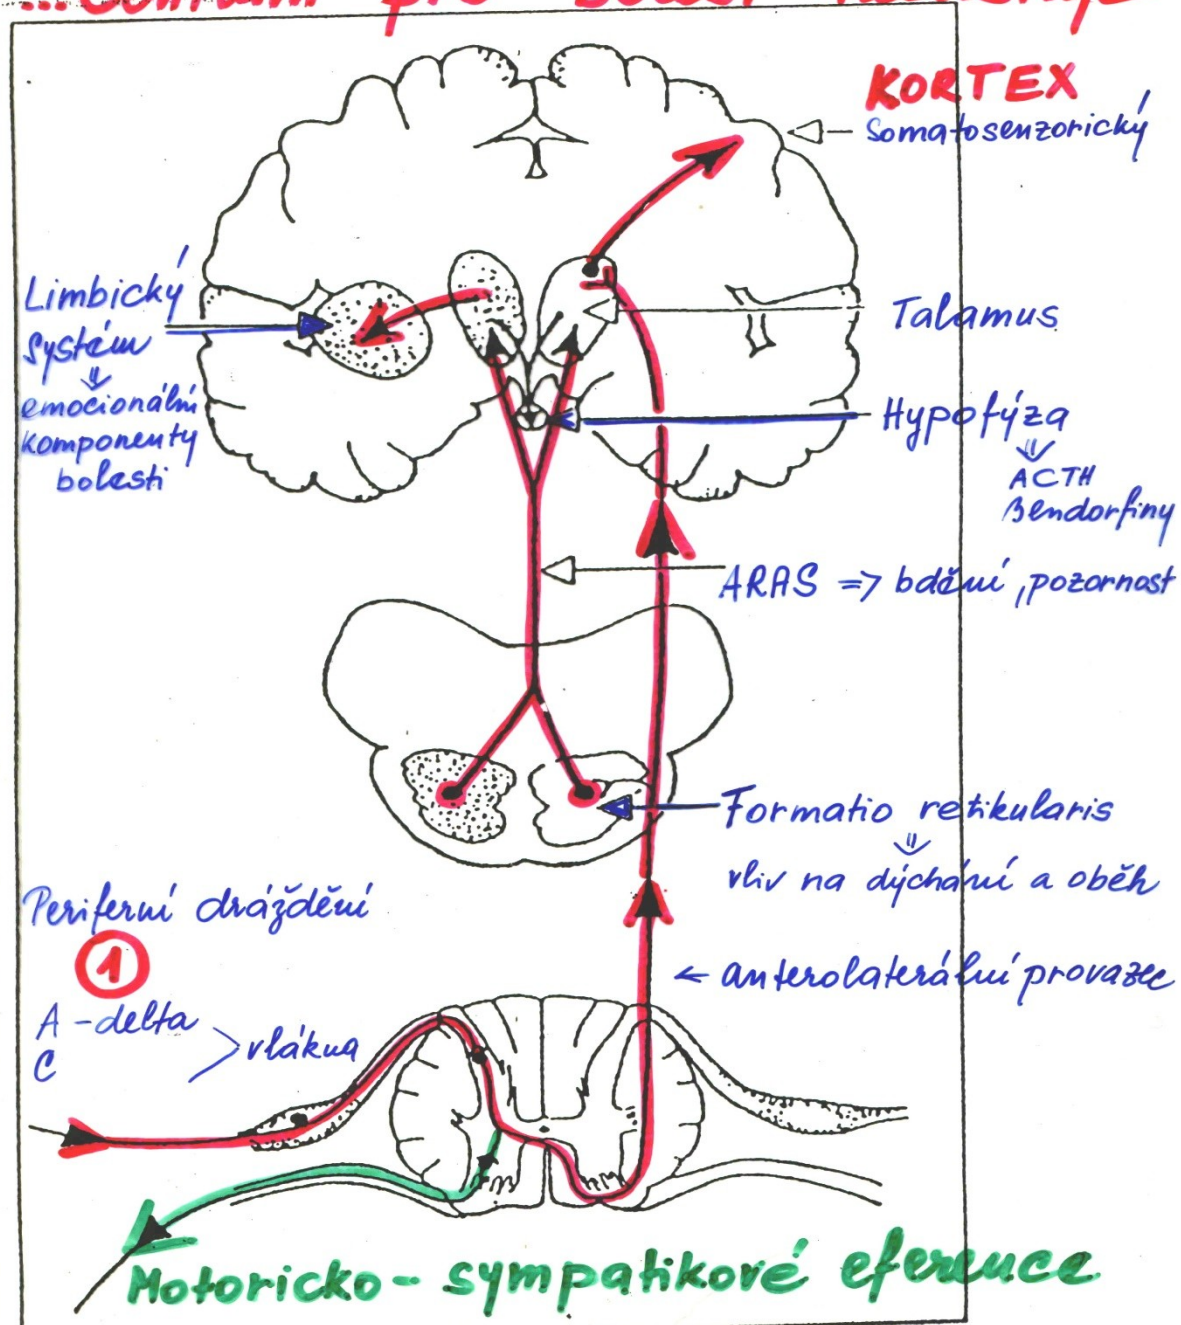 pro
KORTEX
Somatosenzorický
Limbický
systém
⇓
emocionální
komponenty
bolesti
Talamus
Hypofýza
⇓
ACTH
Bendorfiny
ARAS => bdění, pozornost
Formatio retikularis
⇓
vliv na dýchání a oběh
Periferní dráždění
1
← anterolaterální provazec
A-delta
C
vlákna
Motoricko-sympatikové eference